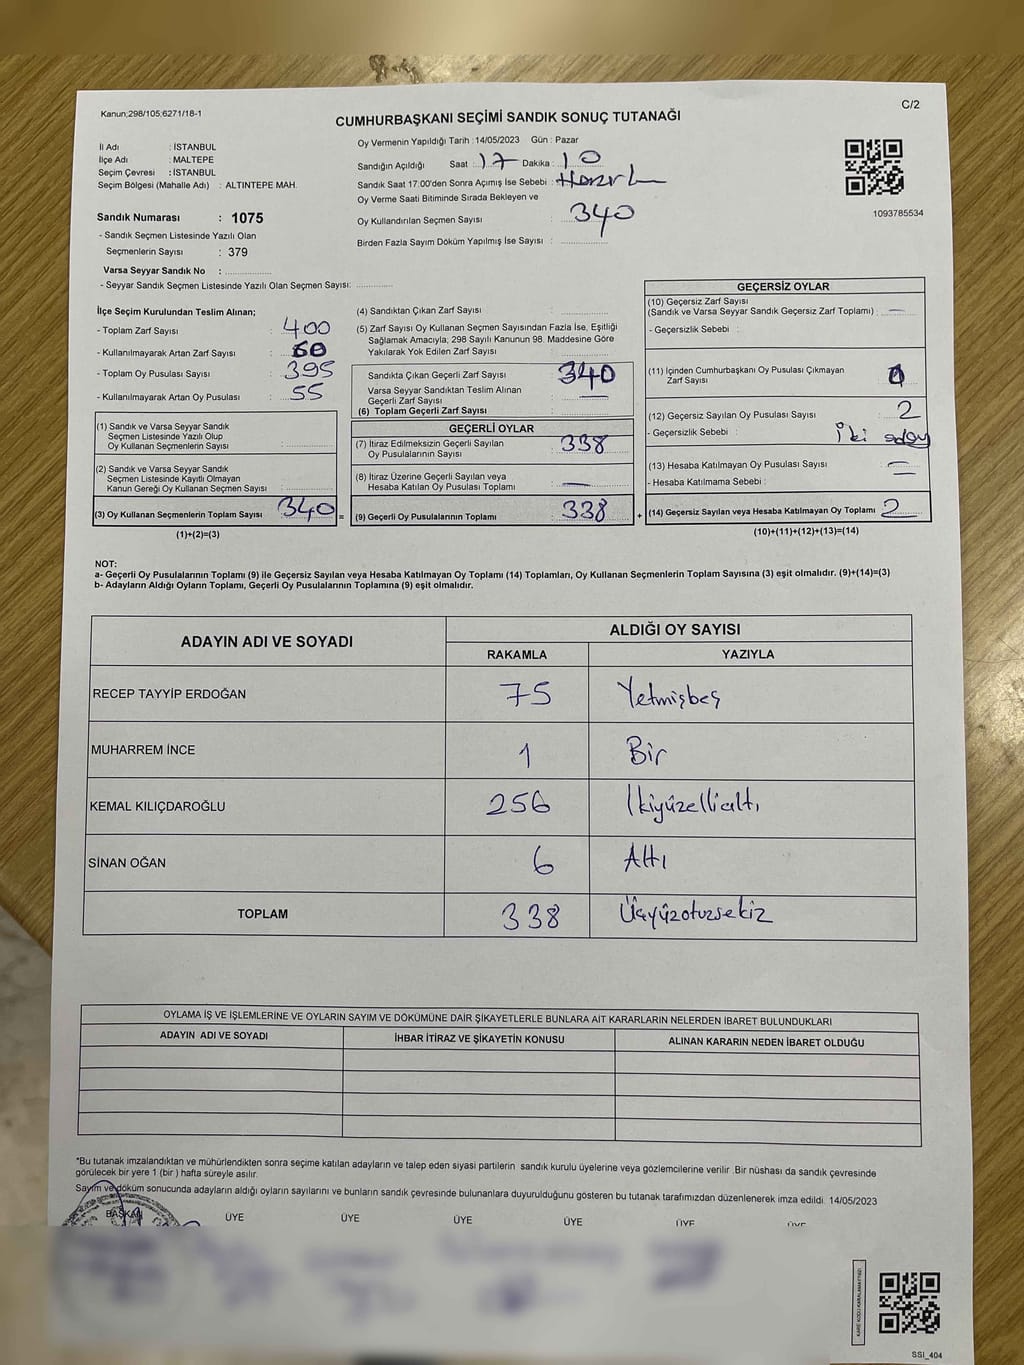 Kanun;298/105;6271/18-1
C/2
CUMHURBAŞKANI SEÇİMİ SANDIK SONUÇ TUTANAĞI
İl Adı : İSTANBUL
İlçe Adı : MALTEPE
Seçim Çevresi : İSTANBUL
Seçim Bölgesi (Mahalle Adı) : ALTINTEPE MAH.
Sandık Numarası : 1075
- Sandık Seçmen Listesinde Yazılı Olan
Seçmenlerin Sayısı : 379
Varsa Seyyar Sandık No : ....................
- Seyyar Sandık Seçmen Listesinde Yazılı Olan Seçmen Sayısı: .............
Oy Vermenin Yapıldığı Tarih : 14/05/2023 Gün : Pazar
Sandığın Açıldığı Saat : 17 Dakika : 10
Sandık Saat 17.00'den Sonra Açımış İse Sebebi :
Oy Verme Saati Bitiminde Sırada Bekleyen ve
Oy Kullandırılan Seçmen Sayısı : 340
Birden Fazla Sayım Döküm Yapılmış İse Sayısı : ................
1093785534
İlçe Seçim Kurulundan Teslim Alınan;
- Toplam Zarf Sayısı : 400
- Kullanılmayarak Artan Zarf Sayısı : 60
- Toplam Oy Pusulası Sayısı : 395
- Kullanılmayarak Artan Oy Pusulası : 55
(1) Sandık ve Varsa Seyyar Sandık
Seçmen Listesinde Yazılı Olup
Oy Kullanan Seçmenlerin Sayısı :
(2) Sandık ve Varsa Seyyar Sandık
Seçmen Listesinde Kayıtlı Olmayan
Kanun Gereği Oy Kullanan Seçmen Sayısı :
(3) Oy Kullanan Seçmenlerin Toplam Sayısı 340 =
(1)+(2)=(3)
(4) Sandıktan Çıkan Zarf Sayısı :
(5) Zarf Sayısı Oy Kullanan Seçmen Sayısından Fazla İse, Eşitliği
Sağlamak Amacıyla; 298 Sayılı Kanunun 98. Maddesine Göre
Yakılarak Yok Edilen Zarf Sayısı :
Sandıkta Çıkan Geçerli Zarf Sayısı : 340
Varsa Seyyar Sandıktan Teslim Alınan
Geçerli Zarf Sayısı : —
(6) Toplam Geçerli Zarf Sayısı :
GEÇERLİ OYLAR
(7) İtiraz Edilmeksizin Geçerli Sayılan
Oy Pusulalarının Sayısı : 338
(8) İtiraz Üzerine Geçerli Sayılan veya
Hesaba Katılan Oy Pusulası Toplamı : —
(9) Geçerli Oy Pusulalarının Toplamı : 338 +
GEÇERSİZ OYLAR
(10) Geçersiz Zarf Sayısı
(Sandık ve Varsa Seyyar Sandık Geçersiz Zarf Toplamı) : —
- Geçersizlik Sebebi :
(11) İçinden Cumhurbaşkanı Oy Pusulası Çıkmayan
Zarf Sayısı : 0
(12) Geçersiz Sayılan Oy Pusulası Sayısı : 2
- Geçersizlik Sebebi : İki
(13) Hesaba Katılmayan Oy Pusulası Sayısı : —
- Hesaba Katılmama Sebebi : —
(14) Geçersiz Sayılan veya Hesaba Katılmayan Oy Toplamı : 2
(10)+(11)+(12)+(13)=(14)
NOT:
a- Geçerli Oy Pusulalarının Toplamı (9) ile Geçersiz Sayılan veya Hesaba Katılmayan Oy Toplamı (14) Toplamları, Oy Kullanan Seçmenlerin Toplam Sayısına (3) eşit olmalıdır. (9)+(14)=(3)
b- Adayların Aldığı Oyların Toplamı, Geçerli Oy Pusulalarının Toplamına (9) eşit olmalıdır.
ADAYIN ADI VE SOYADI
ALDIĞI OY SAYISI
RAKAMLA YAZIYLA
RECEP TAYYİP ERDOĞAN 75 Yetmişbeş
MUHARREM İNCE 1 Bir
KEMAL KILIÇDAROĞLU 256 İkiyüzellialtı
SİNAN OĞAN 6 Altı
TOPLAM 338 Üçyüzotuzsekiz
OYLAMA İŞ VE İŞLEMLERİNE VE OYLARIN SAYIM VE DÖKÜMÜNE DAİR ŞİKAYETLERLE BUNLARA AİT KARARLARIN NELERDEN İBARET BULUNDUKLARI
ADAYIN ADI VE SOYADI İHBAR İTİRAZ VE ŞİKAYETİN KONUSU ALINAN KARARIN NEDEN İBARET OLDUĞU
*Bu tutanak imzalandıktan ve mühürlendikten sonra seçime katılan adayların ve talep eden siyasi partilerin sandık kurulu üyelerine veya gözlemcilerine verilir .Bir nüshası da sandık çevresinde
görülecek bir yere 1 (bir ) hafta süreyle asılır.
Sayım ve döküm sonucunda adayların aldığı oyların sayılarını ve bunların sandık çevresinde bulunanlara duyurulduğunu gösteren bu tutanak tarafımızdan düzenlenerek imza edildi. 14/05/2023
BAŞKAN ÜYE ÜYE ÜYE ÜYE ÜYE ÜYE
SSI_404